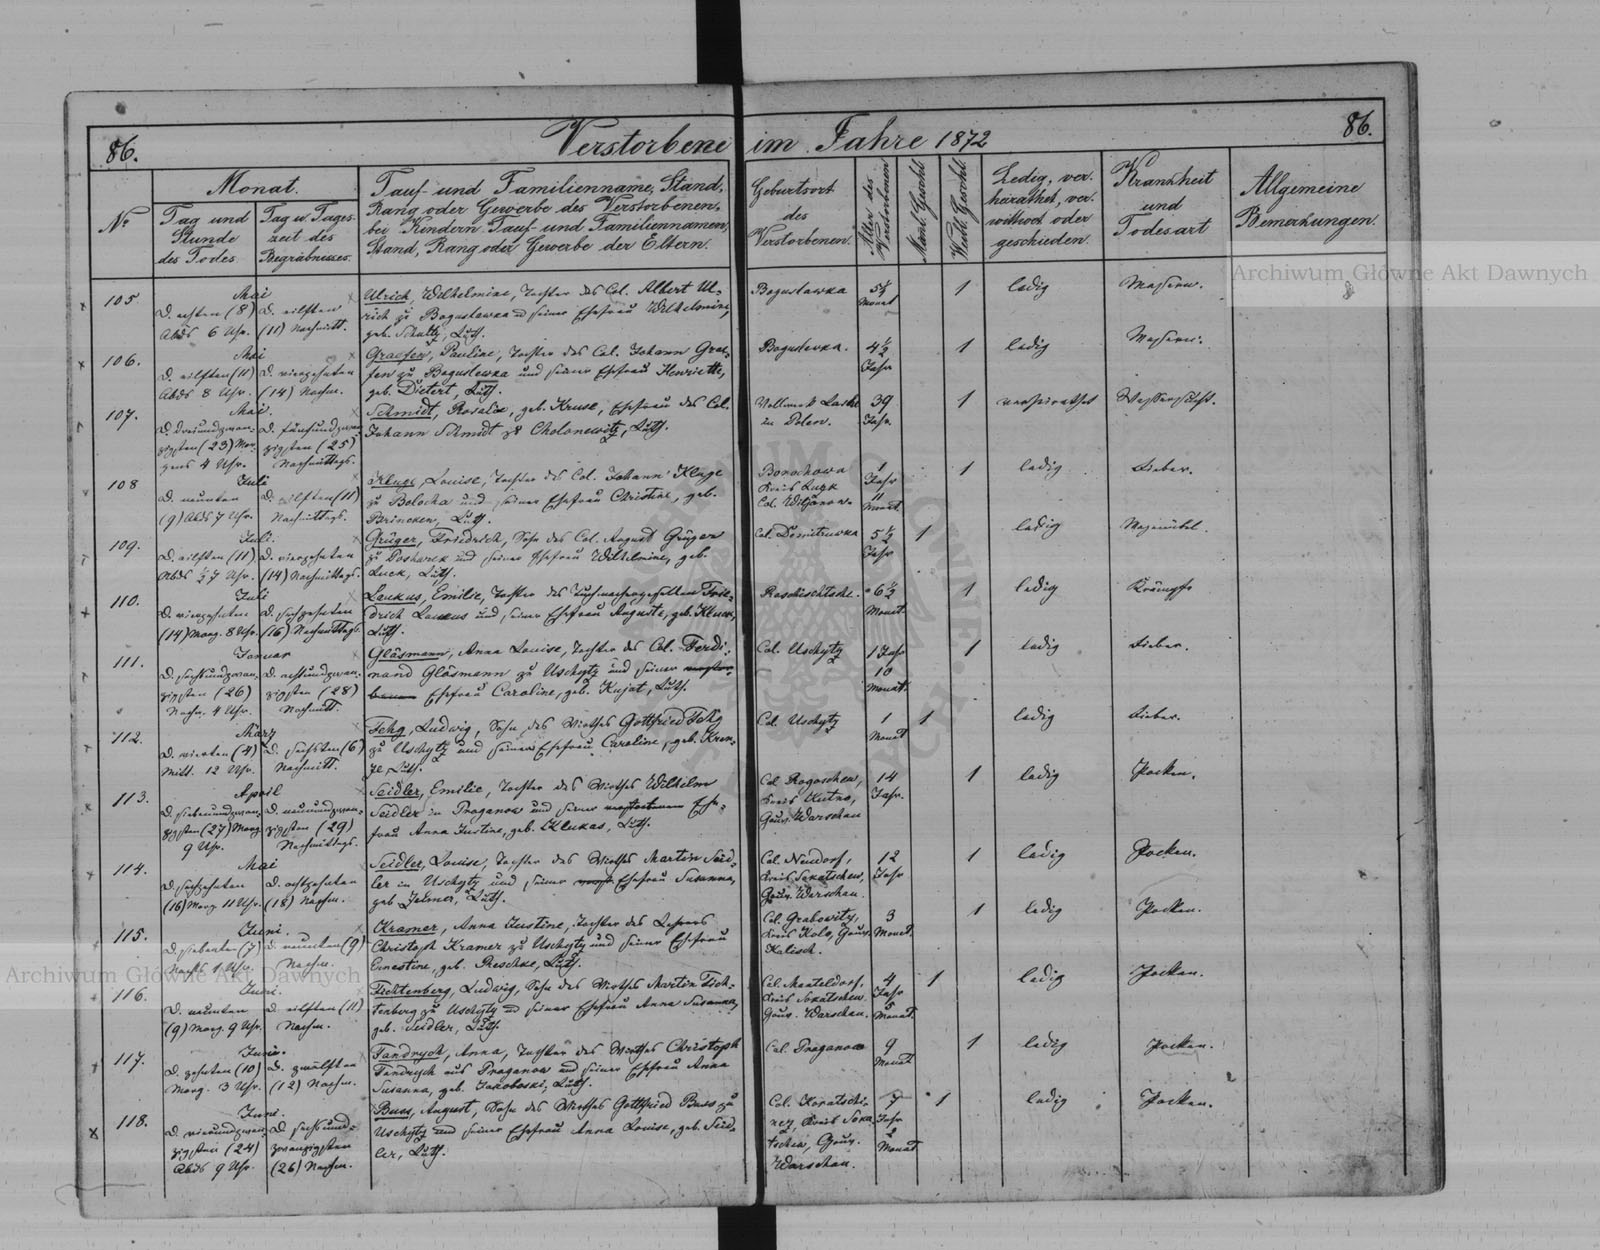 86.
Verstorbene im Jahre 1872
86.
Nr.
Monat.
Tag und Stunde des Todes
Tag u. Tageszeit des Begräbnisses.
Tauf- und Familienname, Stand,
Rang oder Gewerbe des Verstorbenen,
bei Kindern Tauf- und Familiennamen,
Stand, Rang oder Gewerbe der Eltern.
Geburtsort
des
Verstorbenen.
Alter des Verstorbenen
Männl. Geschlt
Weibl. Geschlt
Ledig, ver-
heirathet, ver-
wittwet oder
geschieden.
Krankheit
und
Todesart
Allgemeine
Bemerkungen.
Archiwum Główne Akt Dawnych
105.
Mai
D. achten (8) Abds 6 Uhr.
D. eilften (11) Nachmitt.
Ulrich, Wilhelmine, Tochter des Col. Albert Ul-
rich zu Boguslawka u seiner Ehefrau Wilhelmine,
geb. Schultz, Luth.
Boguslawka
Monat
1
ledig
Masern.
106.
Mai
D. eilften (11) Abds 8 Uhr.
D. vierzehnten (14) Nachm.
Graefen, Pauline, Tochter des Col. Johann Grae-
fen zu Boguslewka und seiner Ehefrau Henriette,
geb. Dietert, Luth.
Boguslewka.
4½ Jahr
1
ledig
Masern.
107.
Mai.
D. dreiundzwan-
zigsten (23) Mor-
gens 4 Uhr.
D. fünfundzwan-
zigsten (25)
Nachmittags.
Schmidt, Rosalie, geb. Kruse, Ehefrau des Col.
Johann Schmidt zu Cholonewitz, Luth.
in Polen.
39 Jahr.
1
verheirathet
Wassersucht.
108
Juli
D. neunten
(9) Abds 7 Uhr.
D. eilften (11)
Nachmittags.
Kluge, Louise, Tochter des Col. Johann Kluge
zu Bolocha und seiner Ehefrau Christine, geb.
Brincken, Luth.
Borochowa
Kreis Luzk
1 Jahr
11 Monat
1
ledig
Fieber.
109.
Juli.
D. eilften (11)
Abds ½ 7 Uhr.
D. vierzehnten
(14) Nachmittags.
Grüger, Friedrich, Sohn des Col. August Grüger
zu und seiner Ehefrau Wilhelmine, geb.
Luck, Luth.
Col. Demitruwka
5½
Jahr
1
ledig
110.
Juli
D. vierzehnten
(14) Morg. 8 Uhr.
D. sechzehnten
(16) Nachmittags.
Laukus, Emilie, Tochter des Tuchmachergesellen Frie-
drich Laukus und seiner Ehefrau Auguste, geb.
Luth.
Roschischtsche.
6½
Monat
1
ledig
Krämpfe
111.
Januar
D. sechsundzwan-
zigsten (26)
Nachm. 4 Uhr.
D. achtundzwan-
zigsten (28)
Nachmitt.
Gläsmann, Anna Louise, Tochter des Col. Ferdi-
nand Gläsmann zu Uschytz und seiner verstor-
benen Ehefrau Caroline, geb. Kujat, Luth.
Col. Uschytz
1 Jahr
10
Monat.
1
ledig
Fieber.
112.
März
D. vierten (4)
Mitt. 12 Uhr.
D. sechsten (6)
Nachmitt.
Fehg, Ludwig, Sohn des Wirthes Gottfried Fehg
zu Uschytz und seiner Ehefrau Caroline, geb.
Luth.
Col. Uschytz
1
Monat
1
ledig
Fieber.
113.
April
D. siebenundzwan-
zigsten (27) Morg.
9 Uhr.
D. neunundzwan-
zigsten (29)
Nachmittags.
Seidler, Emilie, Tochter des Wirthes Wilhelm
Seidler in Praganow und seiner verstorbenen Ehe-
frau Anna Justine, geb. Klukas, Luth.
Col. Rogoschen,
Kreis Kutno,
Gouv. Warschau
14
Jahr.
1
ledig
Pocken.
114.
Mai
D. sechzehnten
(16) Morg. 11 Uhr.
D. achtzehnten
(18) Nachm.
Seidler, Louise, Tochter des Wirthes Martin Seid-
ler in Uschytz und seiner verst Ehefrau Susanna,
geb. Luth.
Col. Neudorf,
Kreis Sokatschew,
Gouv. Warschau.
12
Jahr
1
ledig
Pocken.
115.
Juni.
D. siebenten (7)
Nachts 1 Uhr.
D. neunten (9)
Nachm.
Kramer, Anna Justine, Tochter des Lehrers
Christoph Kramer zu Uschytz und seiner Ehefrau
Ernestine, geb. Preschke, Luth.
Col. Grabowitz,
Kreis Kolo, Gouv.
Kalisch.
3
Monat
1
ledig
Pocken.
Archiwum Główne Akt Dawnych
116.
Juni.
D. neunten
(9) Morg. 9 Uhr.
D. eilften (11)
Nachm.
Fichtenberg, Ludwig, Sohn des Wirthes Martin Fich-
tenberg zu Uschytz u seiner Ehefrau Anna Susanna,
geb. Seidler, Luth.
Kreis Sokatschew
Gouv. Warschau.
4
Jahr
5
Monat.
1
ledig
Pocken.
117.
Juni.
D. zehnten (10)
Morg. 3 Uhr.
D. zwölften
(12) Nachm.
Jandrych, Anna, Tochter des Wirthes Christoph
Jandrych aus Praganow und seiner Ehefrau Anna
Susanna, geb. Jakoboski, Luth.
Col. Praganow
9
Monat
1
ledig
Pocken.
118.
Juni.
D. vierundzwan-
zigsten (24)
Abds 9 Uhr.
D. sechsund-
zwanzigsten
(26) Nachm.
Buss, August, Sohn des Wirthes Gottfried Buss zu
Uschytz und seiner Ehefrau Anna Louise, geb. Seid-
ler, Luth.
Kreis Soka-
tschew, Gouv.
Warschau.
7
Jahr
2
Monat
1
ledig
Pocken.